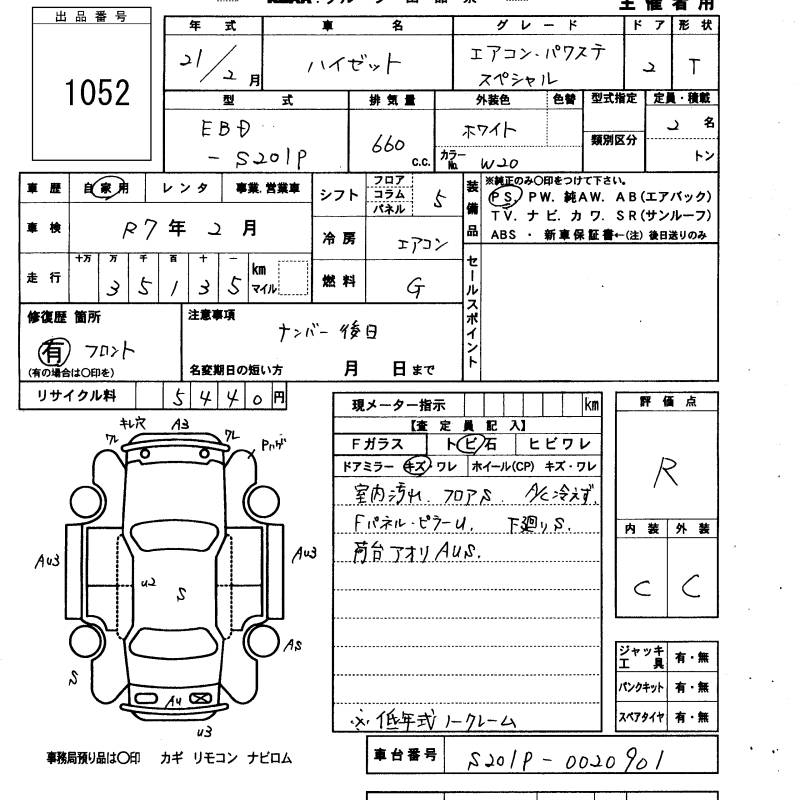 出品番号
1052
主催者用
年式 車名 グレード ドア 形状
21/2月 ハイゼット エアコン・パワステ スペシャル 2 T
型式 排気量 外装色 色替 型式指定 定員・積載
EBD-S201P 660 c.c. ホワイト カラーNo. W20 類別区分 2名 トン
車歴 自家用 レンタ 事業.営業車
車検 R7年 2月
走行 十万 万 千 百 十 一 km マイル
3 5 1 3 5
シフト フロア コラム パネル 5
冷房 エアコン
燃料 G
装備品 ※純正のみ○印をつけて下さい。
PS. PW. 純AW. AB(エアバック)
TV. ナビ. カワ. SR(サンルーフ)
ABS ・ 新車保証書←(注) 後日送りのみ
セールスポイント
修復歴 箇所
有 フロント
(有の場合は○印を)
注意事項
ナンバー後日
名変期日の短い方 月 日まで
リサイクル料 5440円
現メーター指示 km
【査定員記入】
Fガラス トビ石 ヒビワレ
ドアミラー キズ・ワレ ホイール(CP) キズ・ワレ
室内汚れ. フロアS. A/C冷えず.
Fパネル・ピラーU. 下廻りS.
荷台アオリAUS.
※低年式ノークレーム
評価点
R
内装 外装
C C
ジャッキ工具 有・無
パンクキット 有・無
スペアタイヤ 有・無
キレ穴 A3
ワレ ワレ Pハゲ
AU3 AU3
U2 S
AS
S
A4
U3
事務局預り品は○印 カギ リモコン ナビロム
車台番号 S201P-0020901